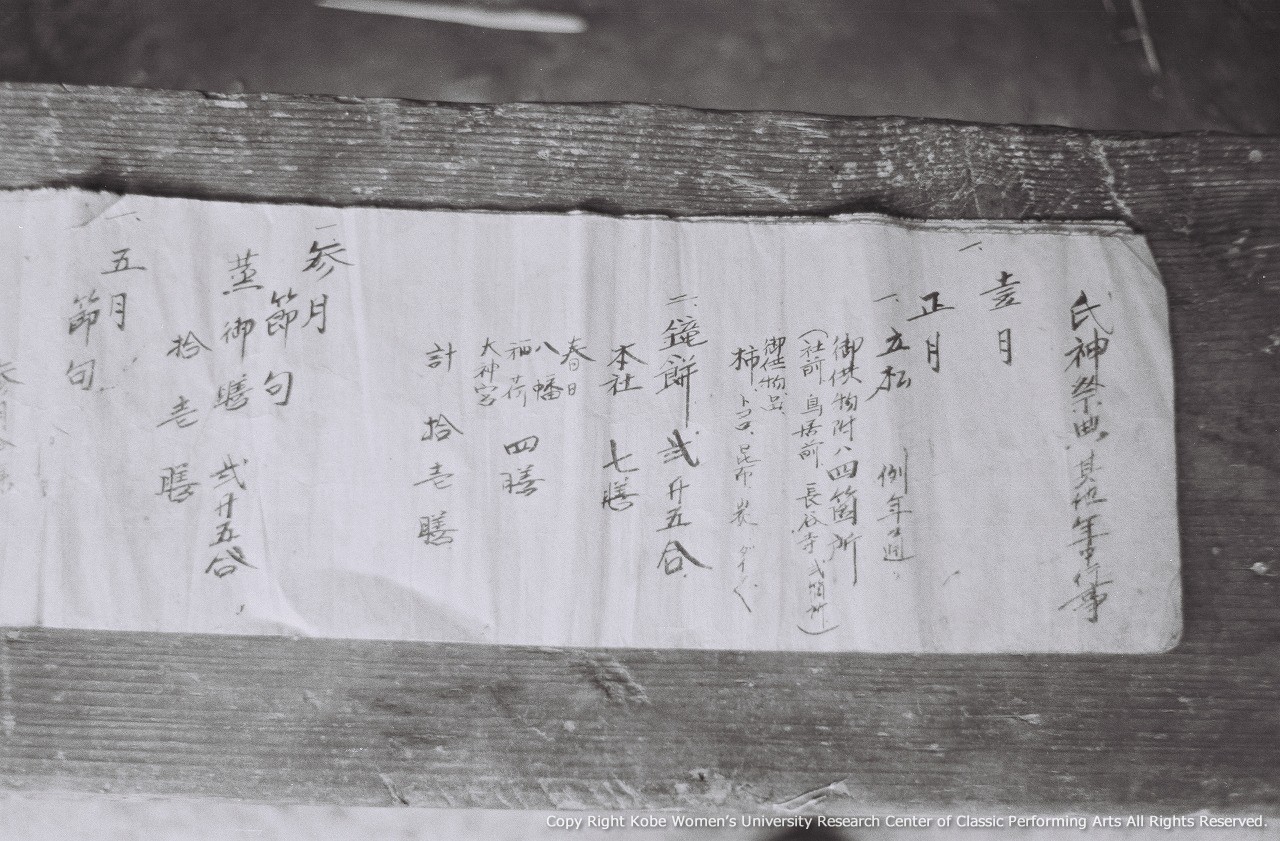 氏神祭典其他年中行事
一、壹月
正月
一、立松 例年ノ通
御供物附ハ四箇所
(社前、鳥居前、長谷寺弐箇所)
御供物品
柿、トコロ、昆布、炭、ダイダイ
二、鏡餅 弐升五合
本社 七膳
春日
八幡 四膳
稲荷
大神宮
計 拾壱膳
一、参月
節句
蒸御膳 弐升五合
拾壱膳
一、五月
節句
Copy Right Kobe Women's University Research Center of Classic Performing Arts All Rights Reserved.